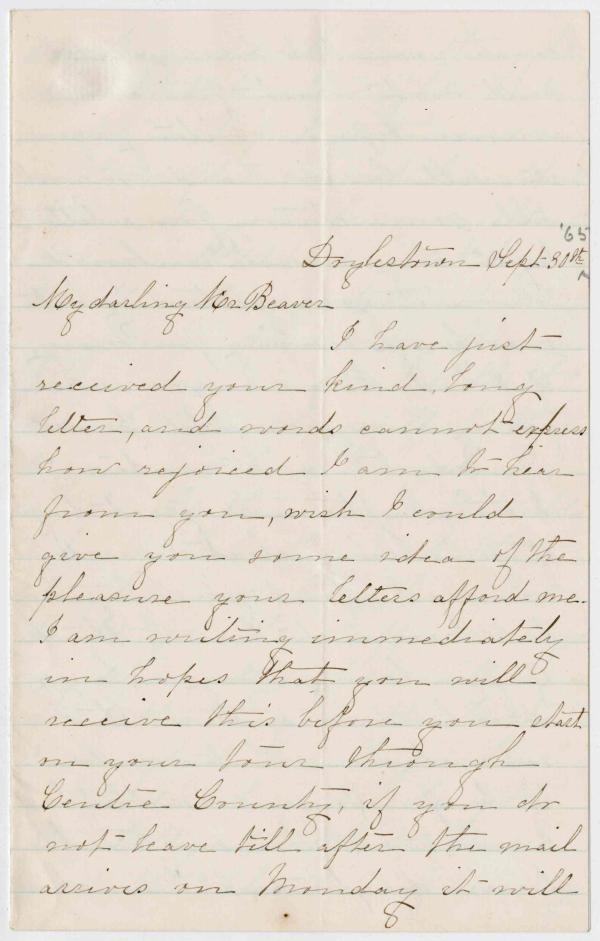 '65
Doylestown Sept 30th
My darling Mr Beaver
I have just
received your kind, long
letter, and words cannot express
how rejoiced I am to hear
from you, wish I could
give you some idea of the
pleasure your letters afford me.
I am writing immediately
in hopes that you will
receive this before you start
on your tour through
Centre County, if you do
not leave till after the mail
arrives on Monday it will